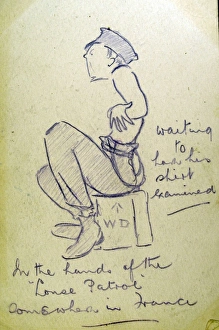 waiting
to
have his
shirt
examined
WD
In the hands of the
"Louse Patrol"
somewhere in France